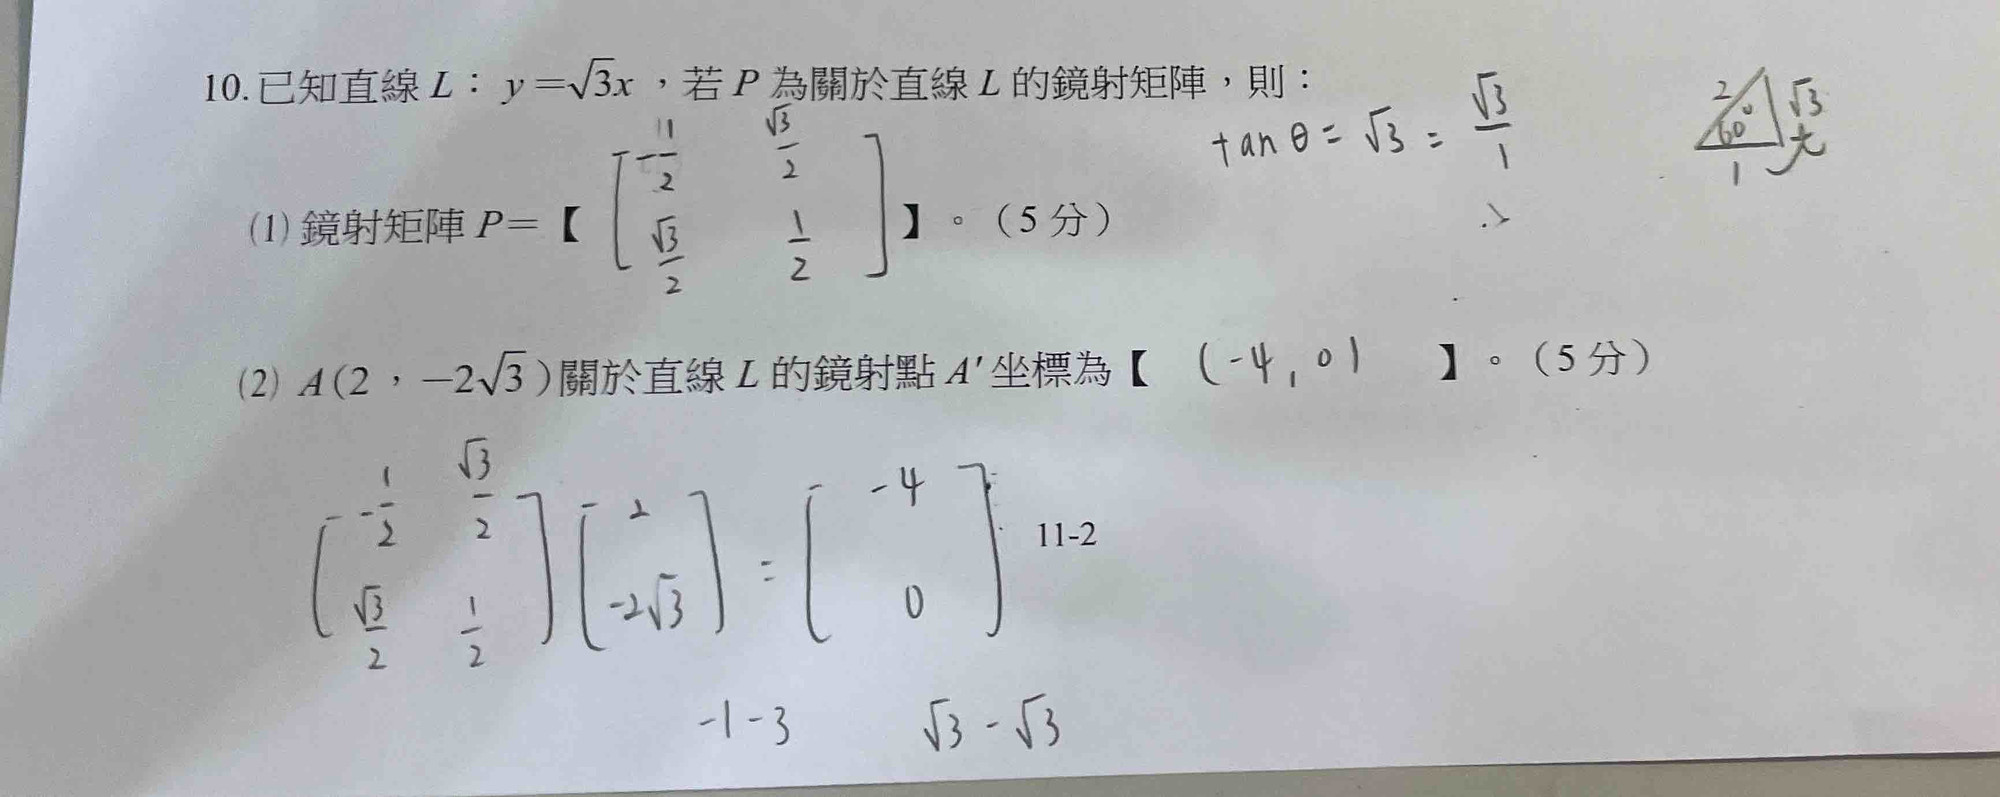 10.已知直線 L：y＝√3x，若 P 為關於直線 L 的鏡射矩陣，則：
tan θ = √3 = √3/1
2 60° √3 1
∴
(1) 鏡射矩陣 P＝【 [ -1/2 √3/2
√3/2 1/2 ] 】。（5 分）
(2) A(2，−2√3)關於直線 L 的鏡射點 A′坐標為【 (-4, 0) 】。（5 分）
[ -1/2 √3/2 ] [ 2 ] = [ -4 ]
[ √3/2 1/2 ] [ -2√3 ] [ 0 ]
11-2
-1-3 √3-√3